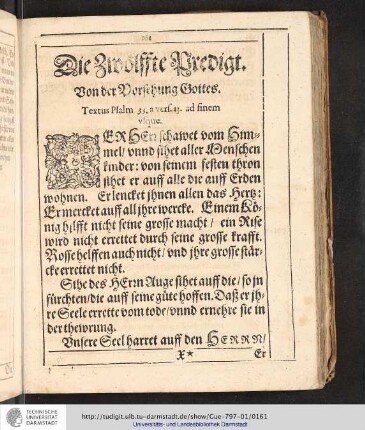 Die Zwölffte Predigt.
Von der Vorsehung Gottes.
Textus Psalm. 33. a vers. 13. ad finem
vsque.
DER HErr schawet vom Him-
mel/ vnnd sihet aller Menschen
kinder: von seinem festen thron
sihet er auff alle die auff Erden
wohnen. Er lencket jhnen allen das Hertz:
Er mercket auff all jhre wercke. Einem Kö-
nig hilfft nicht seine grosse macht/ ein Rise
wird nicht errettet durch seine grosse krafft.
Rosse helffen auch nicht/ vnd jhre grosse stär-
cke errettet nicht.
Sihe des HErrn Auge sihet auff die/ so jn
fürchten/ die auff seine güte hoffen. Daß er jh-
re Seele errette vom tode/ vnnd ernehre sie in
der thewrung.
Vnsere Seel harret auff den HERRN/
X* Er
TECHNISCHE
UNIVERSITÄT
DARMSTADT
http://tudigit.ulb.tu-darmstadt.de/show/Gue-797-01/0161
Universitäts- und Landesbibliothek Darmstadt